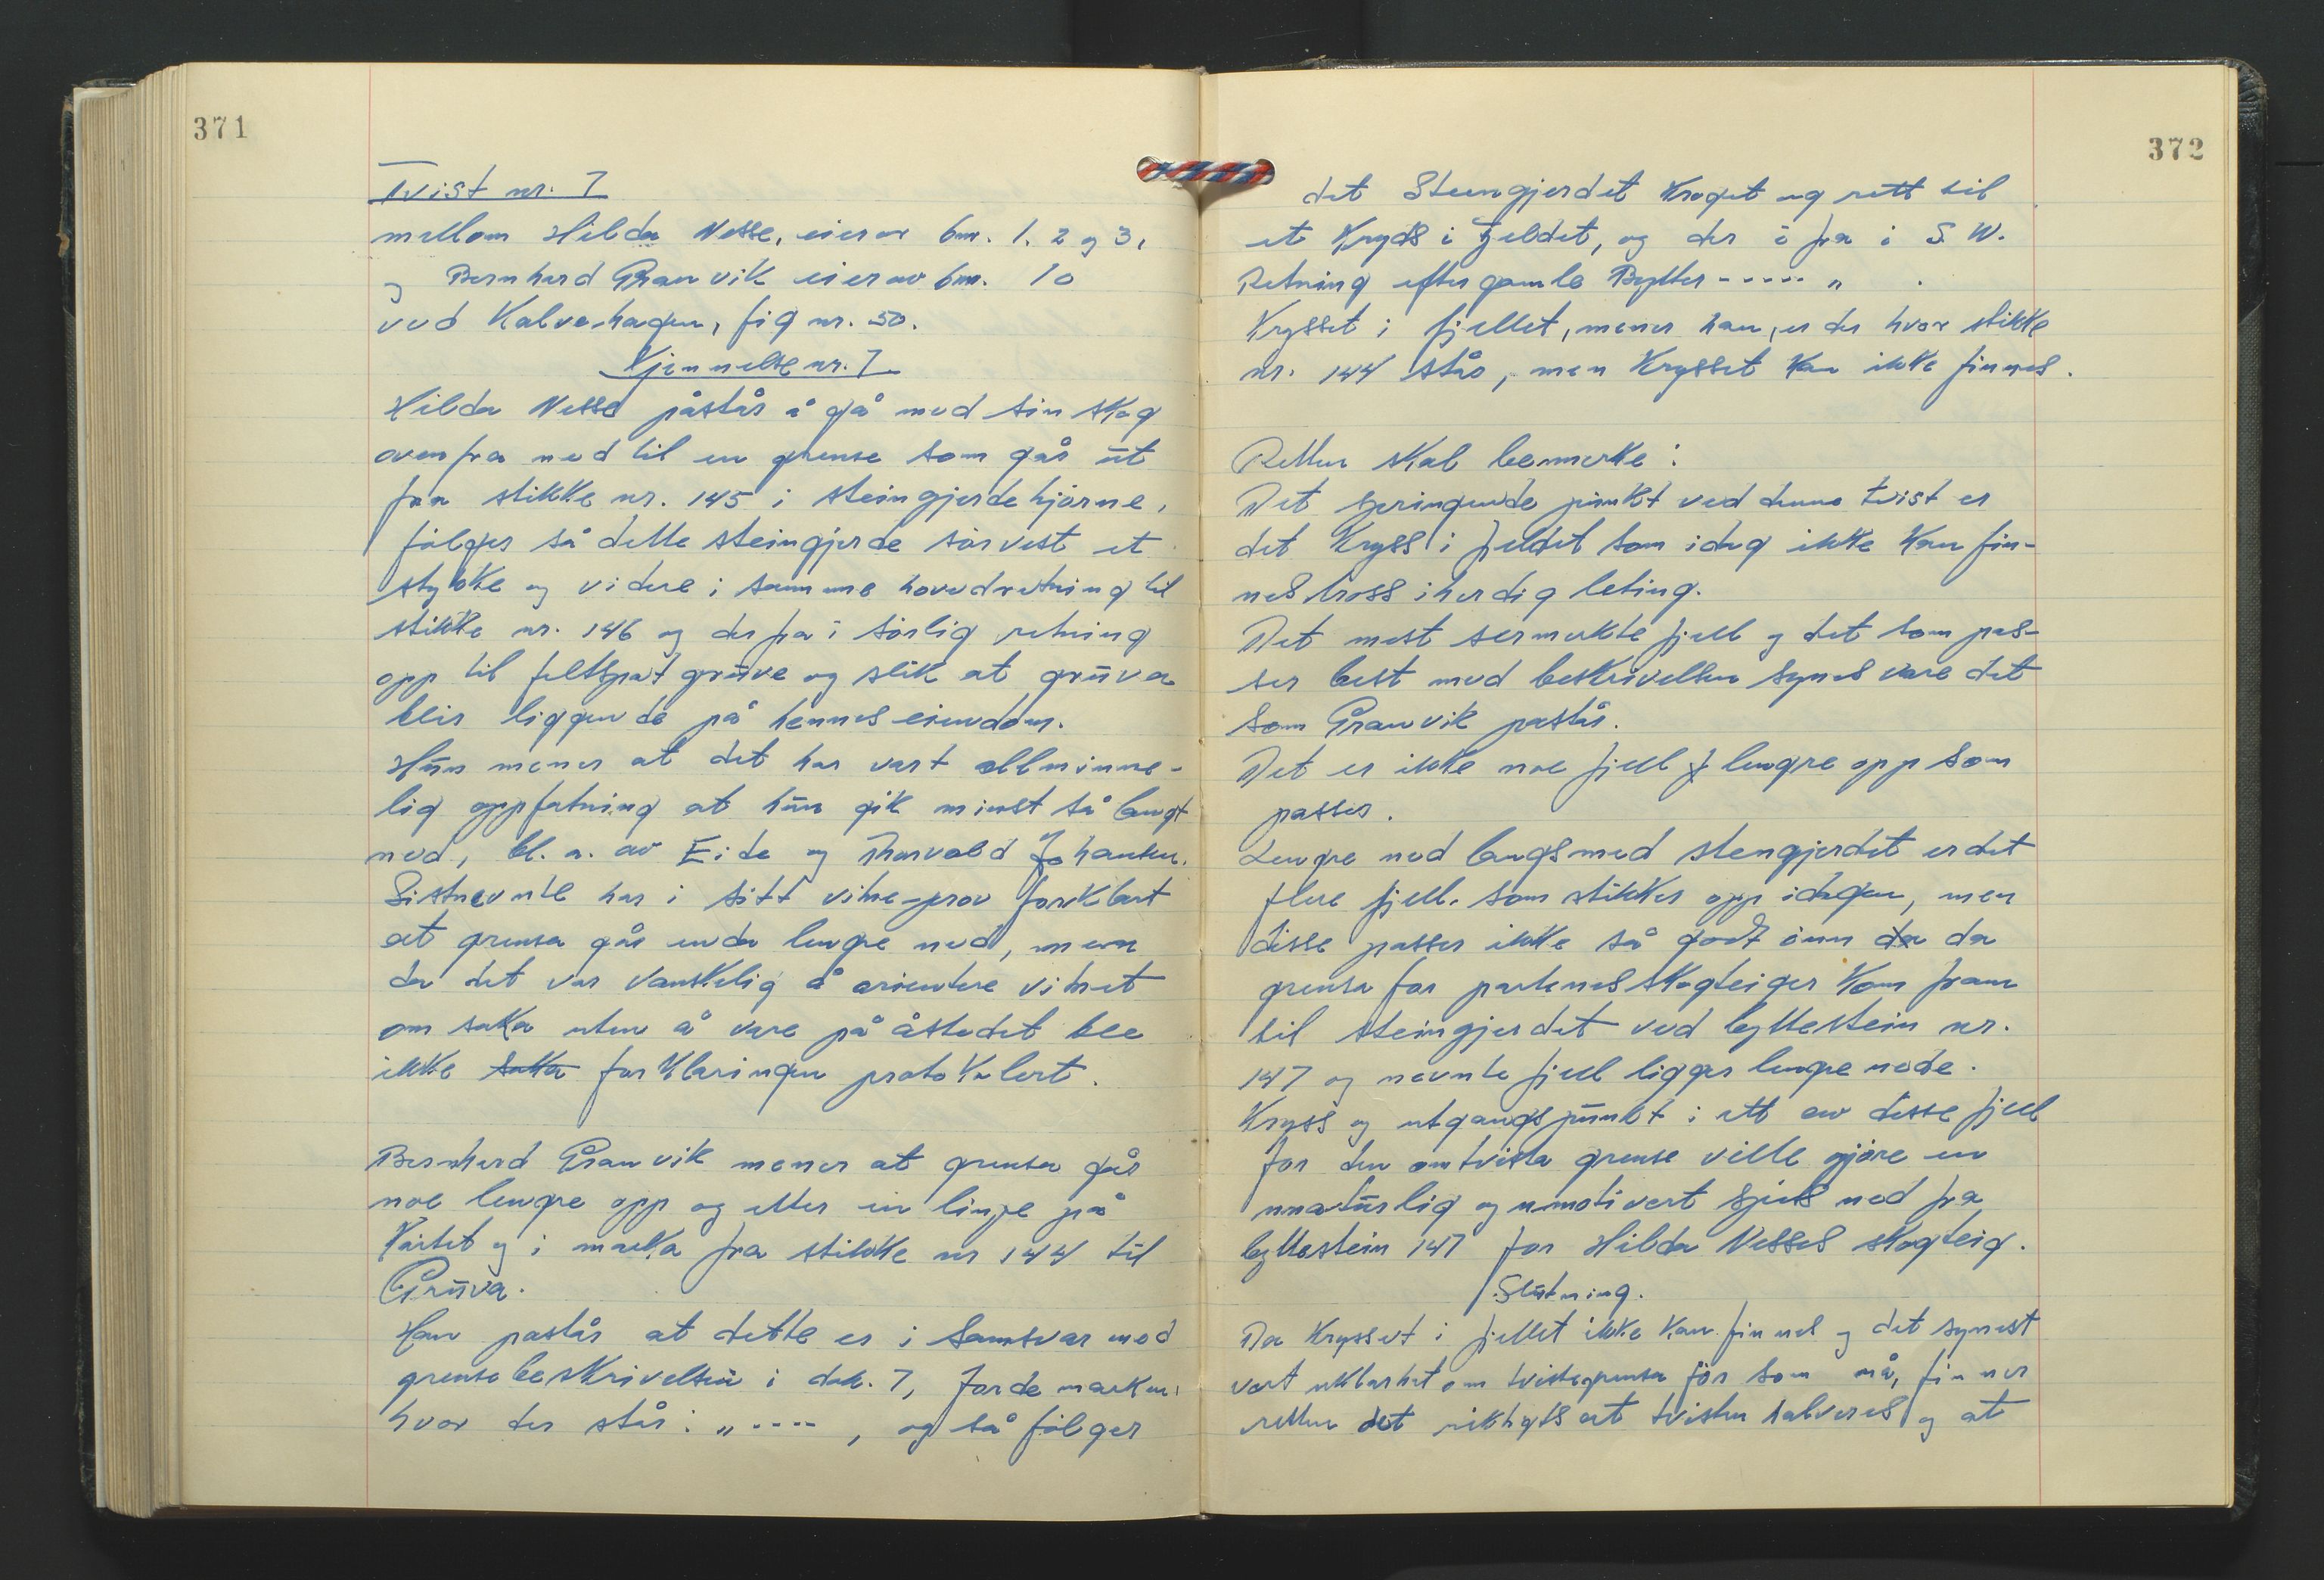 371
Tvist nr. 7
mellom Hilda Nesse, eier av bnr. 1, 2 og 3,
og Bernhard Granvik eier av bnr. 10
ved Kalvehagen, fig nr. 50.
Kjennelse nr. 7
Hilda Nesse påstår å gå med sin skog
ovenfra ned til en grense som går ut
fra stikke nr. 145 i steingjerdehjørne,
følger så dette steingjerde sørvest et
stykke og videre i samme hovedretning til
stikke nr. 146 og derfra i sørlig retning
opp til feltspatgruve og slik at gruva
blir liggende på hennes eiendom.
Hun mener at det har vært allminne-
lig oppfatning at hun gik minst så langt
ned, bl. a. av Eide og Thorvald Johansen.
Sistnevnte har i sitt vitne-prov forklart
at grensa går enda lengre ned, men
da det var vanskelig å orientere vitnet
om saka uten å være på åstedet ble
ikke saka forklaringen protokolert.
Bernhard Granvik mener at grensa går
noe lengre opp og etter en linje på
Kartet og i marka fra stikke nr 144 til
Gruva.
Han påstår at dette er i samsvar med
grensebeskrivelsen i dok. 7, Jordemarken:
hvor der står: „ ----, og så følger
372
det Steengjerdet Kroget og rett til
et Kryds i Fjeldet, og der i fra i S. W.
Retning efter gamle Bytter ----- „ .
Krysset i fjellet, mener han, er der hvor stikke
nr. 144 står, men Krysset kan ikke finnes.
Retten skal bemerke:
Det springende punkt ved denne tvist er
det Kryss i fjeldet som idag ikke kan fin-
nes tross iherdig leting.
Det mest sermerkte fjell og det som pas-
ser best med beskrivelsen synes være det
som Granvik påstår.
Det er ikke noe fjell f lengre opp som
passer.
Lengre ned langsmed stengjerdet er det
flere fjell som stikker opp i dagen, men
disse passer ikke så godt inn da da
grensa for partenes skogteiger kom fram
til steingjerdet ved byttestein nr.
147 og nevnte fjell ligger lengre nede.
Kryss og utgangspunkt i ett av disse fjell
for den omtvista grense ville gjøre en
unaturlig og umotivert spids ned fra
byttestein 147 for Hilda Nesses skogteig.
Slutning.
Da Krysset i fjellet ikke kan finnes og det synest
vert uklarhet om tvistegrensa før som nå, finner
retten det riktigst at tvisten halveres og at